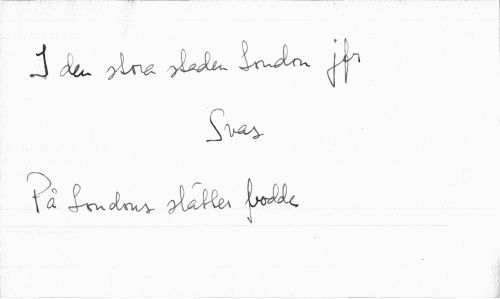 I den stora staden London jfr
Svas
På Londons slätter bodde